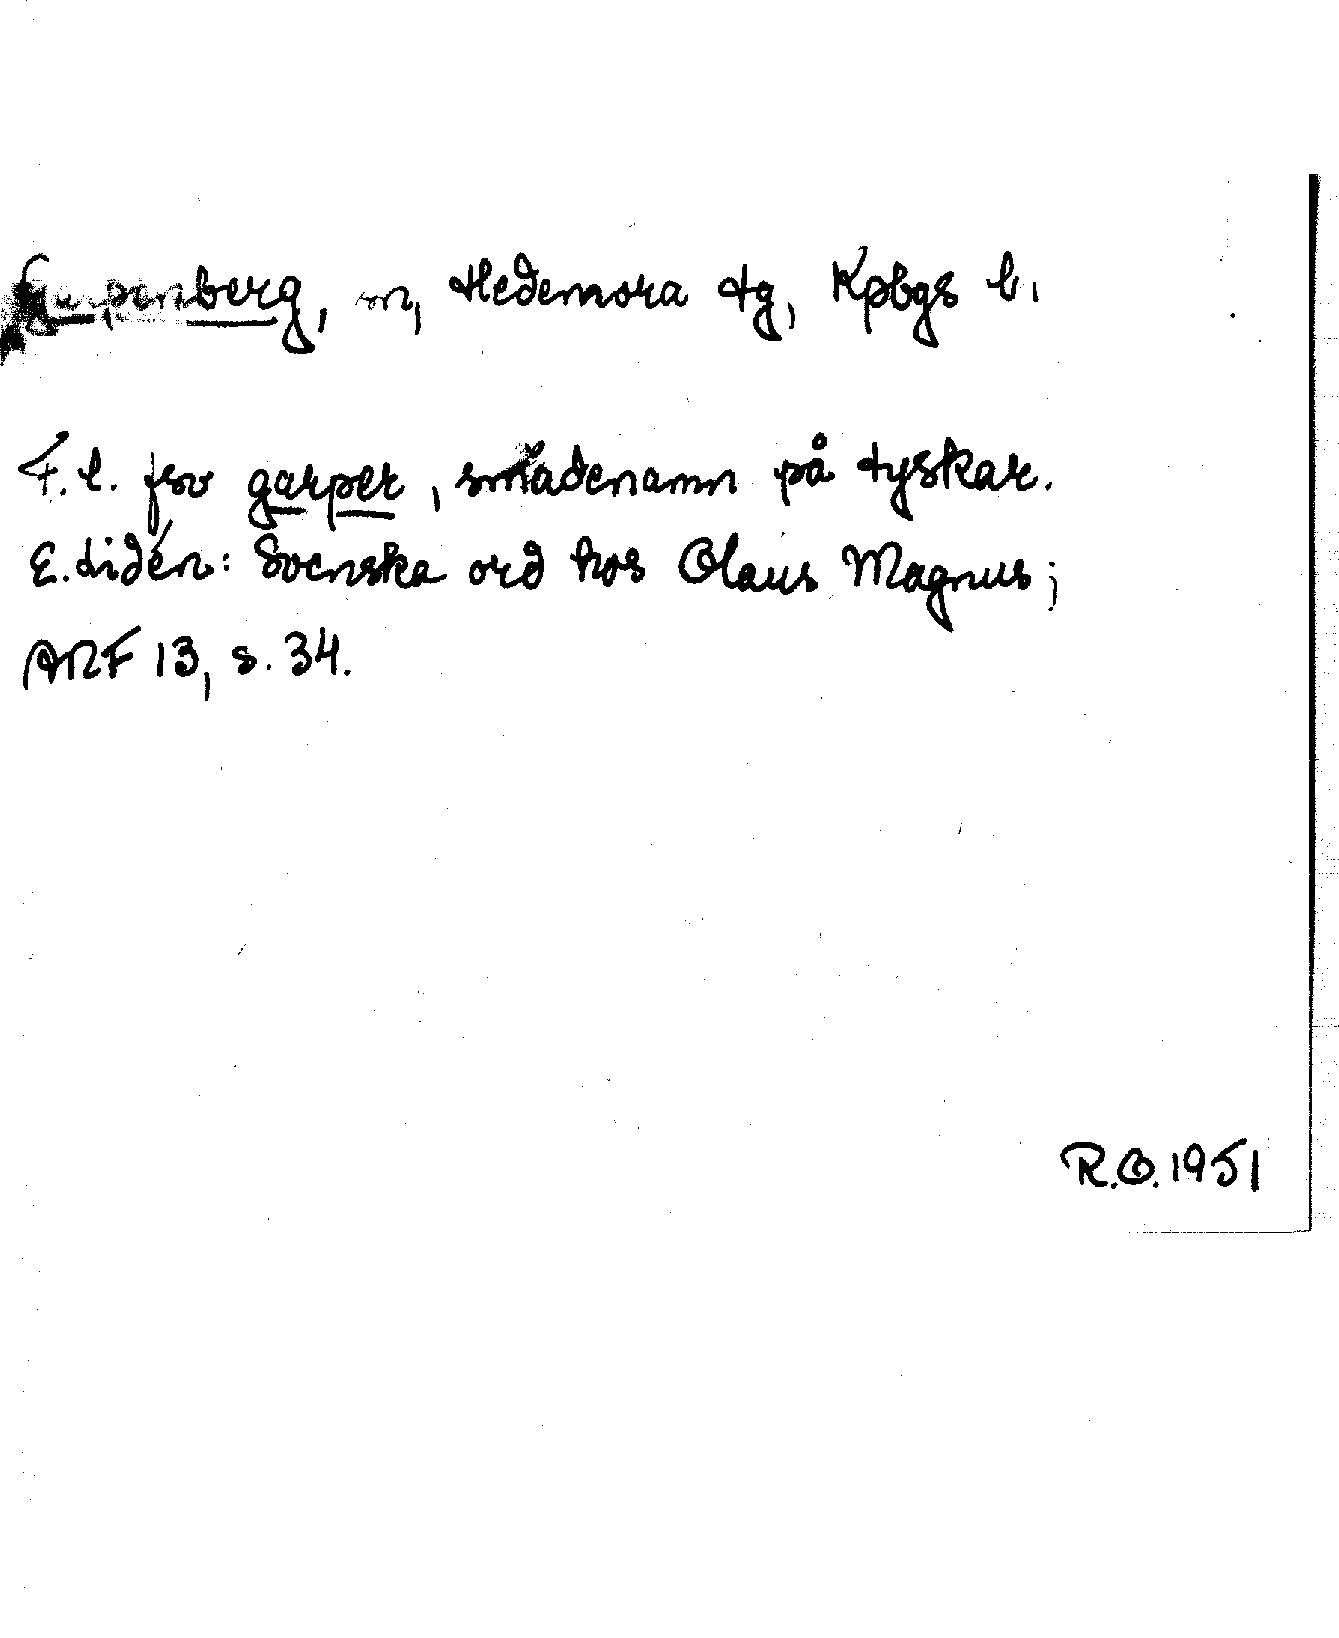 Garpenberg, sn, Hedemora tg, Kpbgs l.
F. l. fsv garper, smädenamn på tyskar.
E. Lidén: Svenska ord hos Olaus Magnus;
ANF 13, s. 34.
R.O. 1951